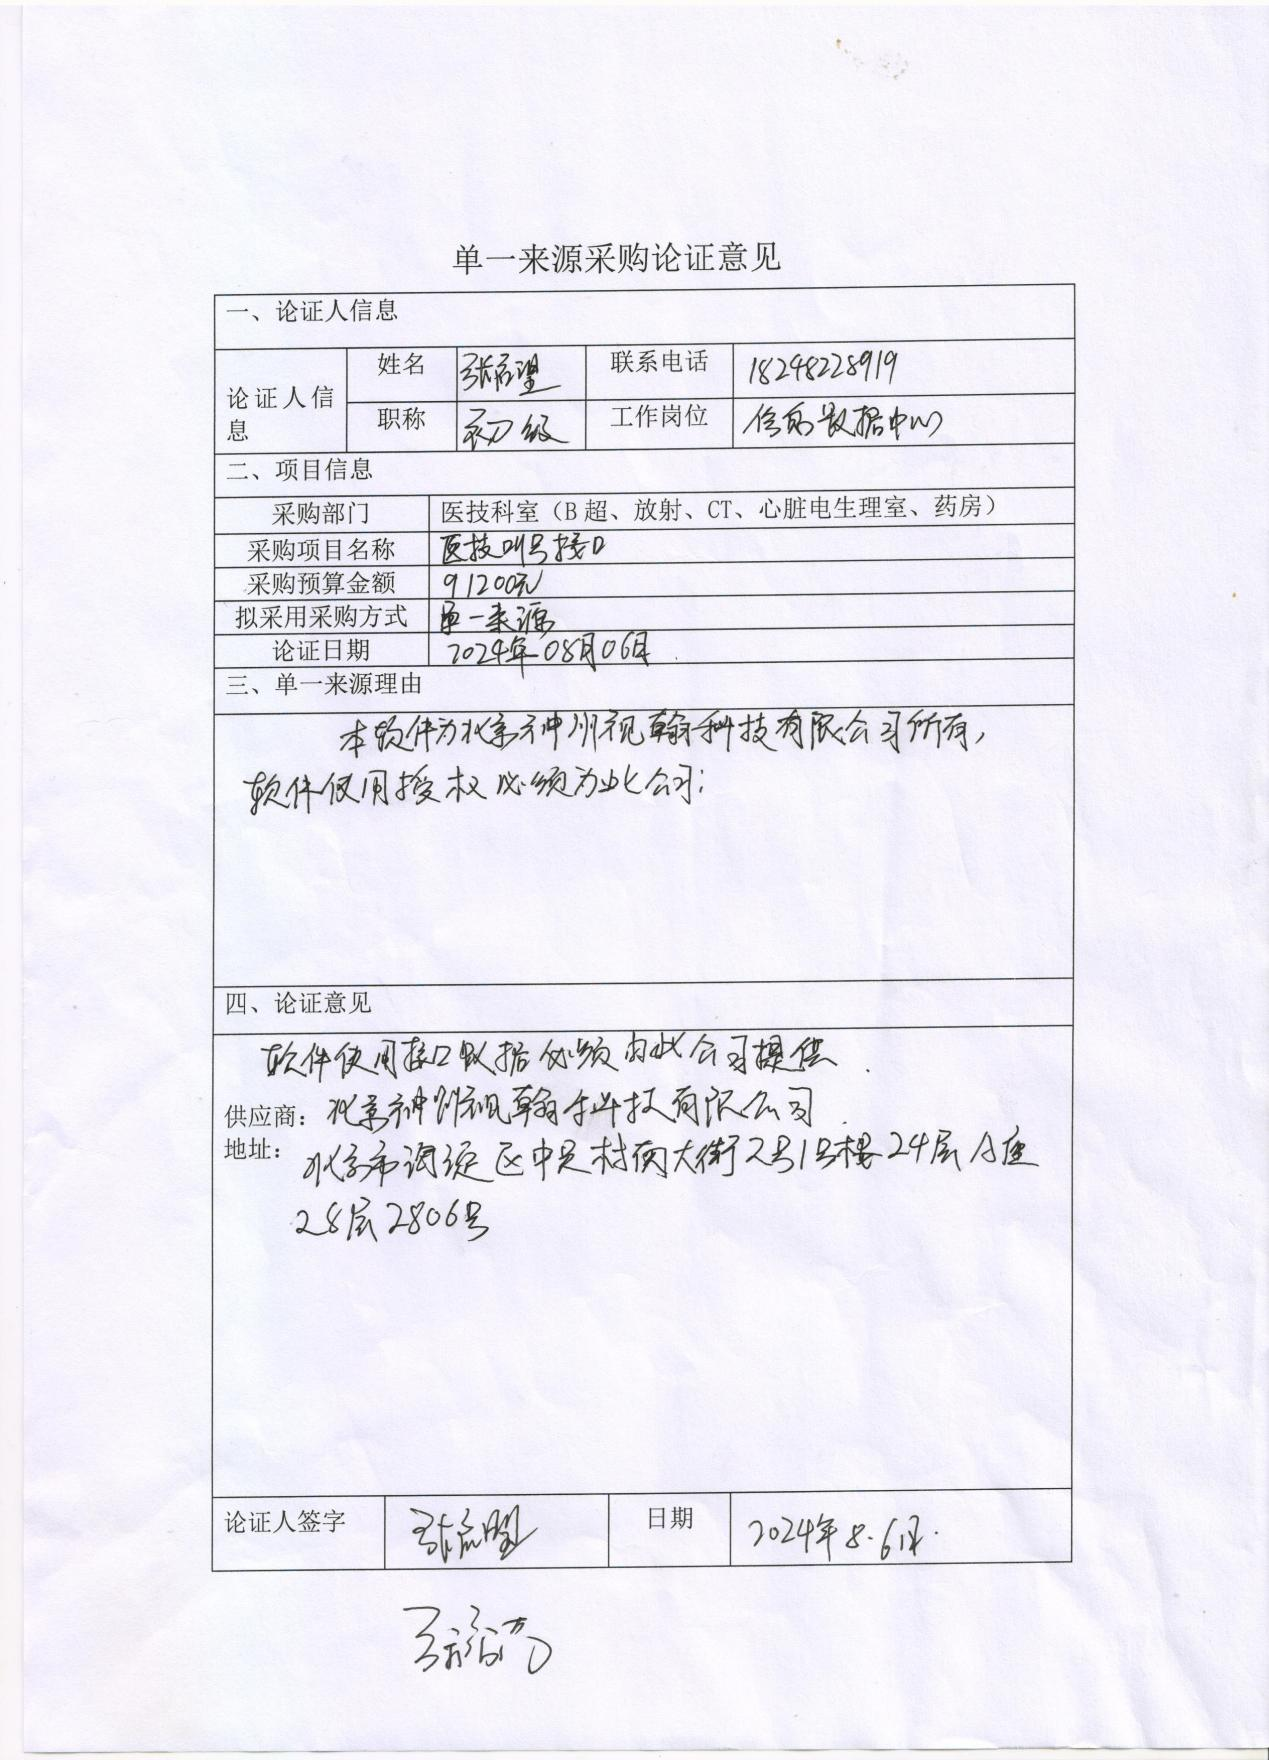 单一来源采购论证意见
一、论证人信息
论证人信息
姓名
联系电话 18248228919
职称 初级
工作岗位 信息数据中心
二、项目信息
采购部门 医技科室（B超、放射、CT、心脏电生理室、药房）
采购项目名称 医技叫号接口
采购预算金额 91200元
拟采用采购方式 单一来源
论证日期 2024年08月06日
三、单一来源理由
本软件为北京神州视翰科技有限公司所有，
软件使用授权必须为此公司；
四、论证意见
软件使用接口数据必须由此公司提供.
供应商：北京神州视翰科技有限公司
地址：北京市海淀区中关村南大街2号1号楼24层A座
28层2806号
论证人签字
日期 2024年8.6日.